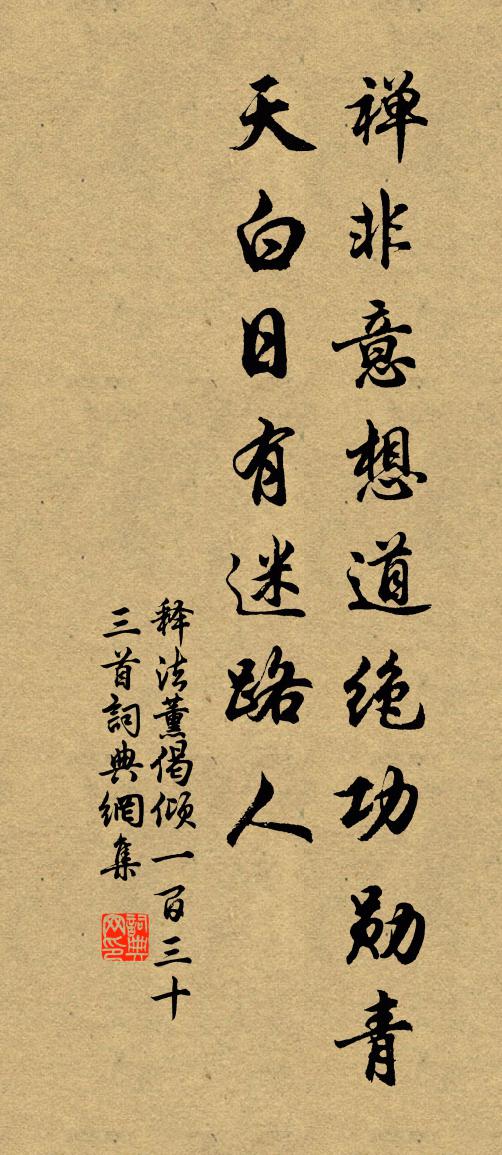 禅非意想道绝功勋青
天白日有迷路人
释法薰偈倾一百三十
三首詞典網集
詞典
网印